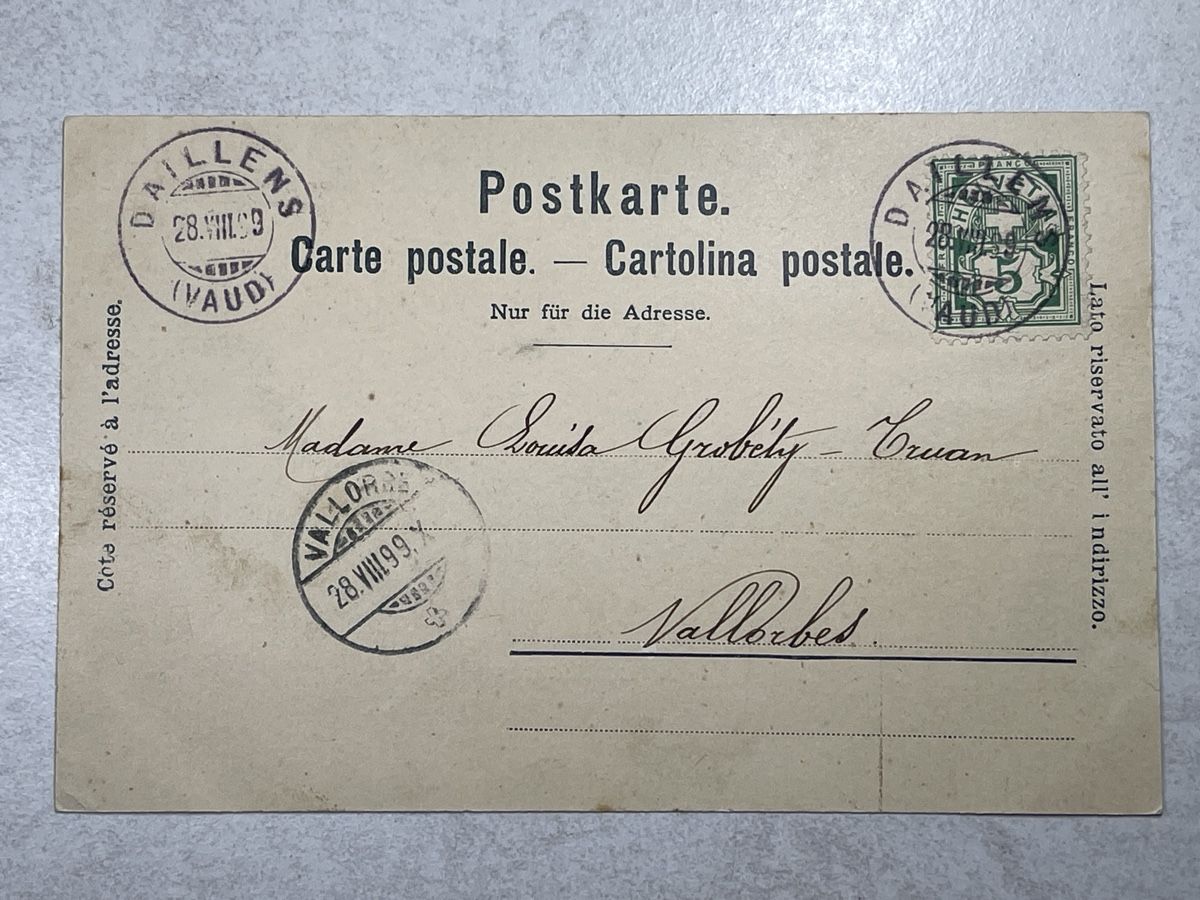 DAILLENS
28.VIII.99
(VAUD)
Postkarte.
Carte postale. — Cartolina postale.
Nur für die Adresse.
DAILLENS
28.VIII.99
(VAUD)
FRANCO
5
Côté réservé à l'adresse.
Lato riservato all' indirizzo.
Madame Louisa Grobéty - Truan
VALLORBE
28.VIII.99.X
Vallorbes.